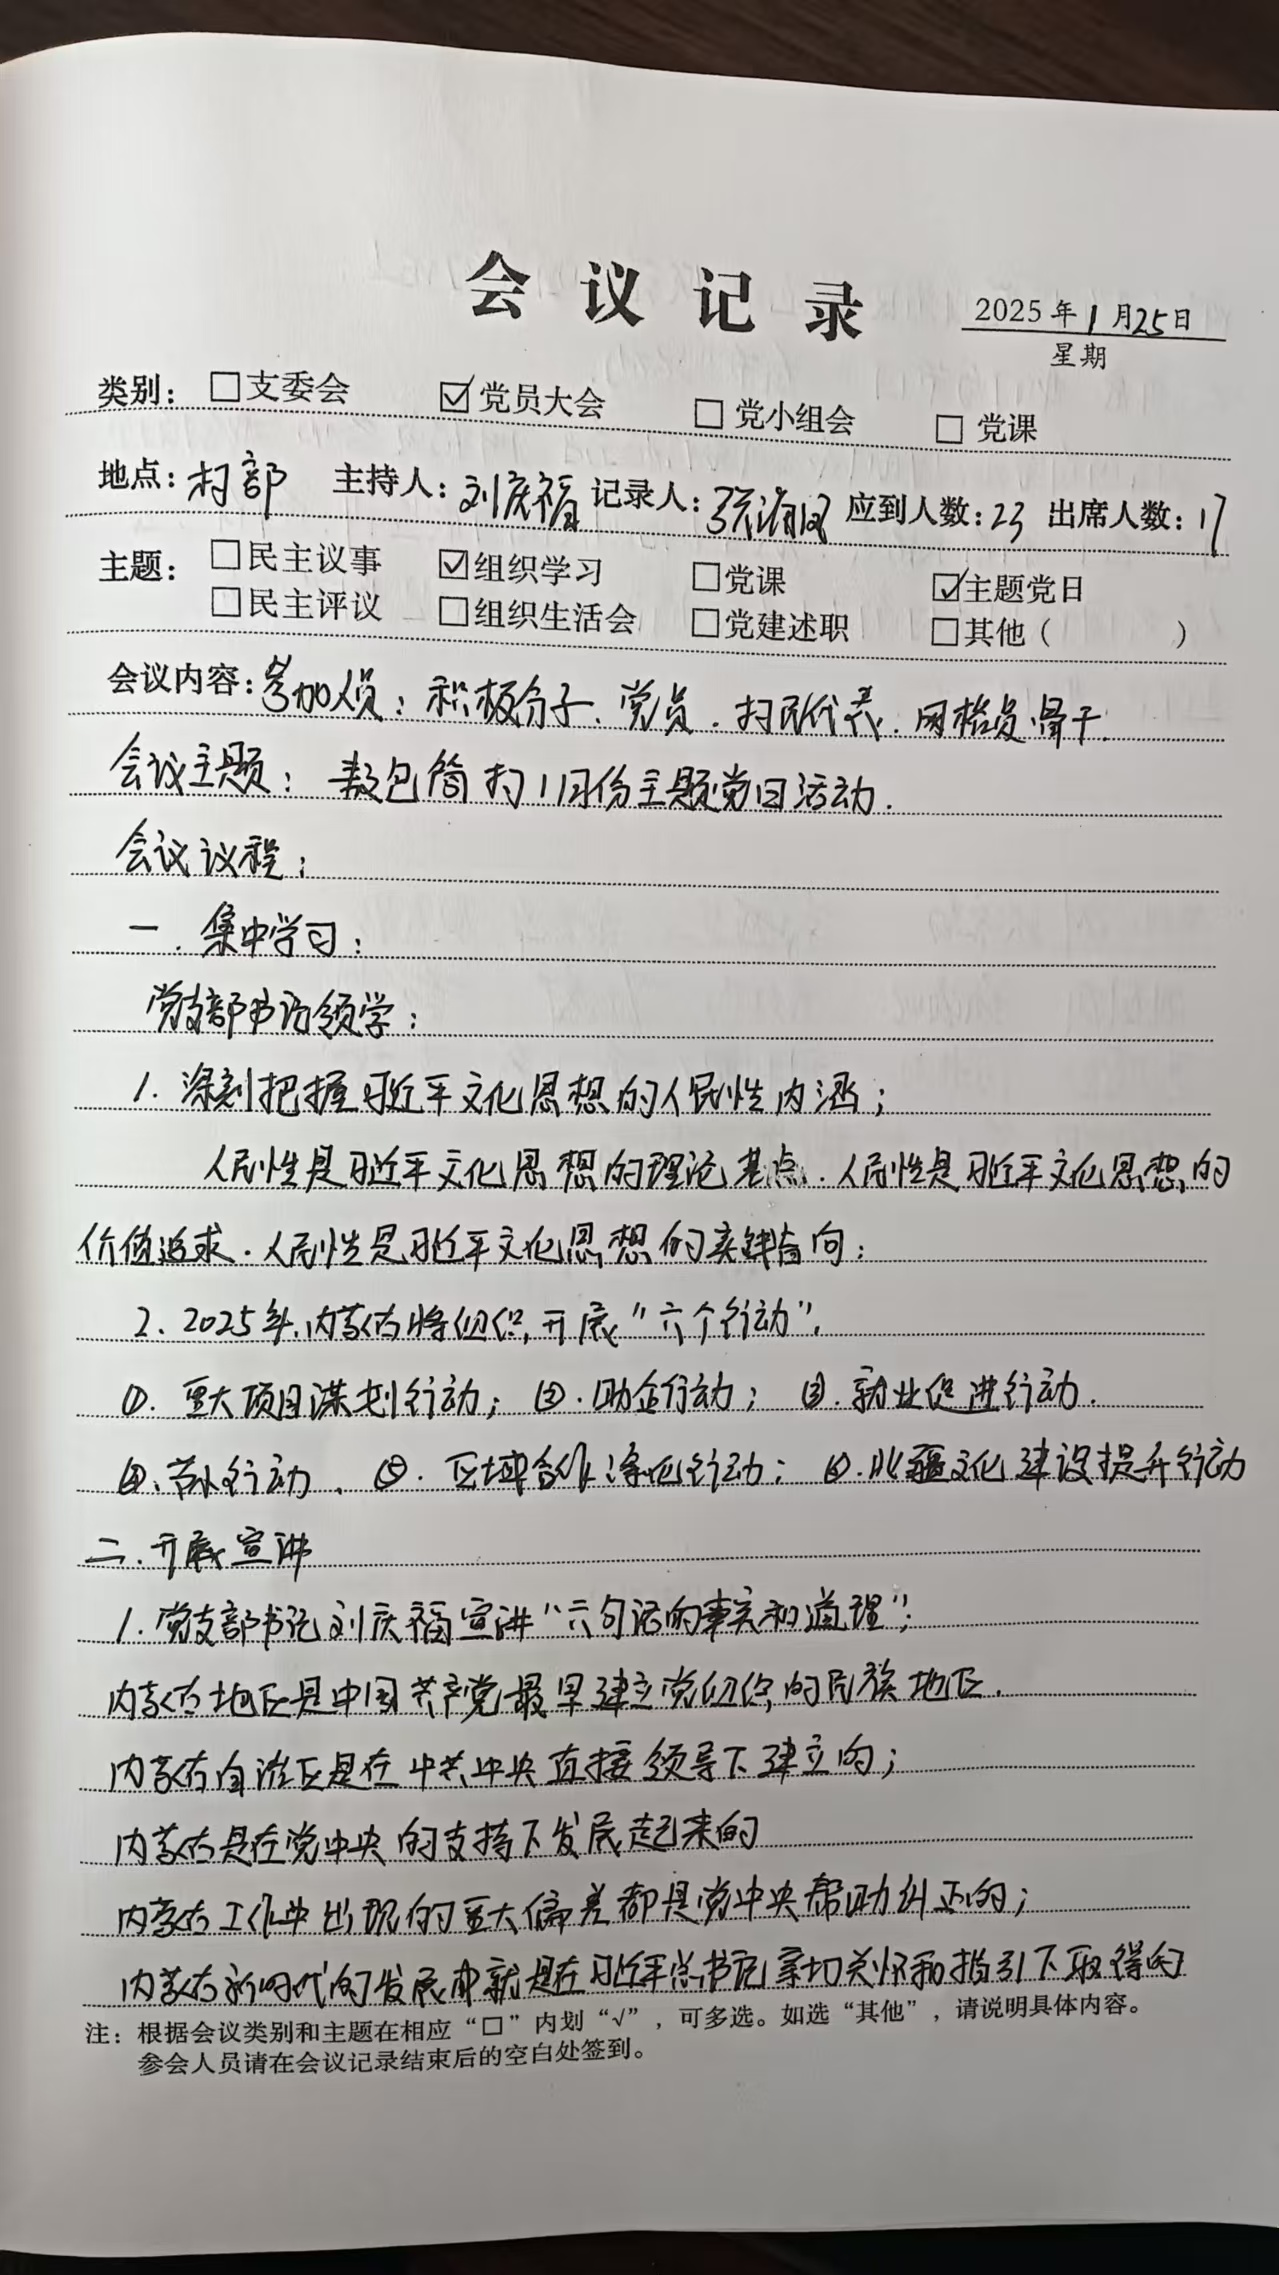 会议记录
2025年1月25日
星期
类别：□支委会 ☑党员大会 □党小组会 □党课
地点：村部 主持人：刘庆福 记录人：张海凤 应到人数：23 出席人数：17
主题：□民主议事 ☑组织学习 □党课 ☑主题党日
□民主评议 □组织生活会 □党建述职 □其他（ ）
会议内容：参加人员：积极分子、党员、村民代表、网格员骨干.
会议主题：敖包筒村1月份主题党日活动.
会议议程：
一.集中学习：
党支部书记领学：
1.深刻把握习近平文化思想的人民性内涵；
人民性是习近平文化思想的理论基点.人民性是习近平文化思想的
价值追求.人民性是习近平文化思想的实践指向；
2、2025年,内蒙古将组织开展“六个行动”,
①.重大项目谋划行动；②.助企行动；③.就业促进行动.
④、节水行动、⑤.区域合作深化行动；⑥.北疆文化建设提升行动
二.开展宣讲
1.党支部书记刘庆福宣讲“六句话的事实和道理”；
内蒙古地区是中国共产党最早建立党组织的民族地区.
内蒙古自治区是在中共中央直接领导下建立的；
内蒙古是在党中央的支持下发展起来的
内蒙古工作中出现的重大偏差都是党中央帮助纠正的；
内蒙古新时代的发展成就是在习近平总书记亲切关怀和指引下取得的
注：根据会议类别和主题在相应“□”内划“√”，可多选。如选“其他”，请说明具体内容。
参会人员请在会议记录结束后的空白处签到。